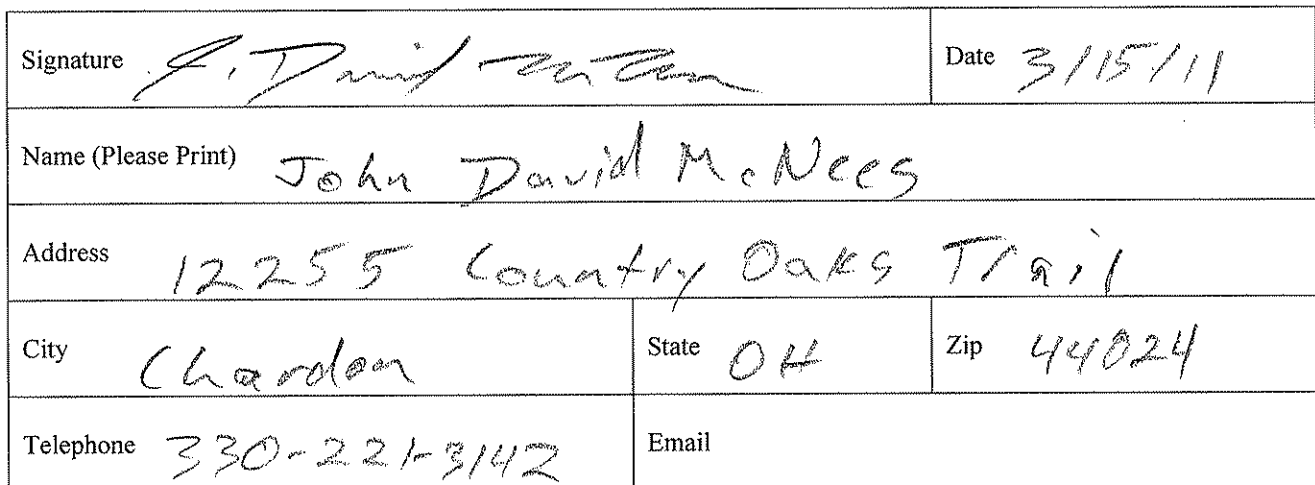 Signature J. David Date 3/15/11
Name (Please Print) John David McNees
Address 12255 Country Oaks Trail
City Chardon State OH Zip 44024
Telephone 330-221-3142 Email